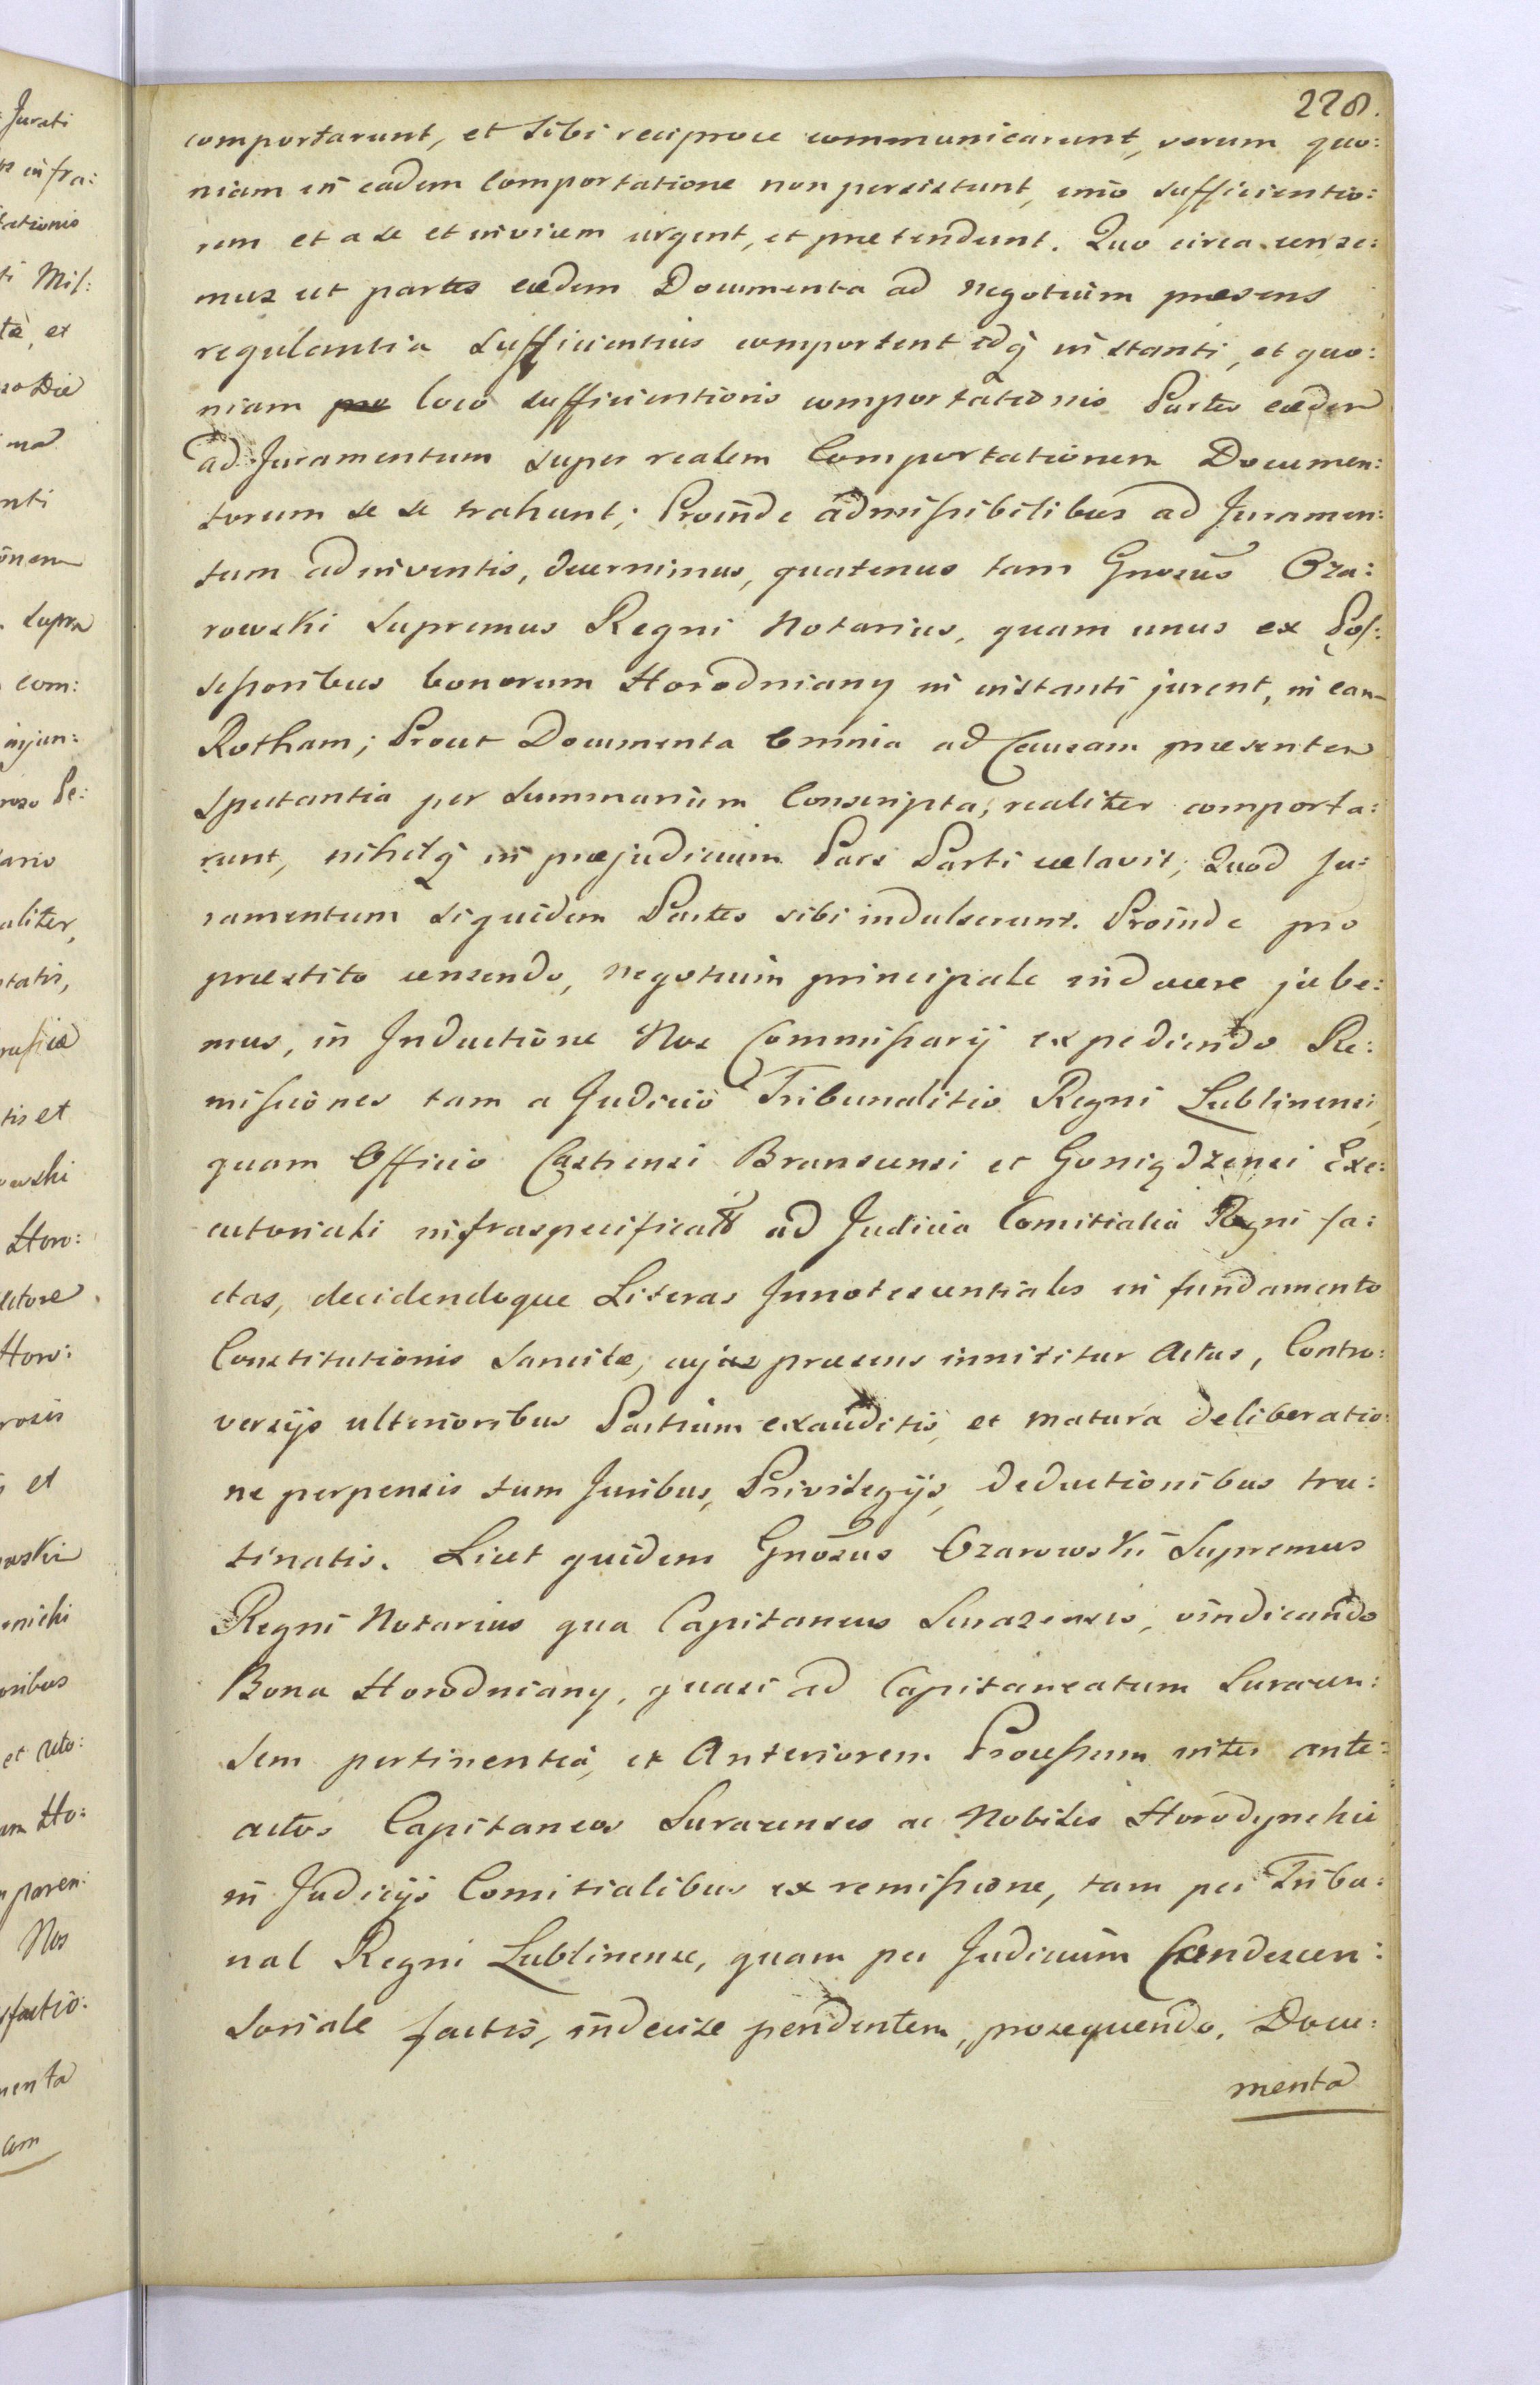 228.
comportarunt, et Sibi reciproce communicarunt, verum quo:
niam in eadem Comportatione non persistunt, imo sufficientio:
rem et a se et invicem urgent, et prætendunt. Quo circa cense:
mus ut partes eædem Documenta ad negotium præsens
regulantia Sufficientius comportent idq in stanti, et quo:
niam loco sufficientioris comportationis Partes eædem
ad Juramentum super realem Comportationem Documen:
torum se se trahunt; Proinde admissibilibus ad Juramen:
tum adinventis, decernimus, quatenus tam Gnosus Oza:
rowski Supremus Regni Notarius, quam unus ex Pos:
sessoribus bonorum Horodniany in instanti jurent, in eam
Rotham; Prout Documenta Omnia ad Causam præsentem
Spectantia per Summarium Conscripta, realiter comporta:
runt, nihilq in præjudicium Pars Parti celavit, Quod Ju:
ramentum siquidem Partes sibi indulserunt. Proinde pro
præstito censendo, negotium principale inducere jube:
mus, in Inductione Nos Commissarij expediendo Re:
missiones tam a Judicio Tribunalitio Regni Lublinensi,
quam Officio Castrensi Bransensi et Goniądzensi Exe:
cutoriali infraspecificato ad Judicia Comitialia Regni fa:
ctas, decidendoque Literas Innotescentiales in fundamento
Constitutionis Sancitæ, cujus præsens innititur Actus, Contro:
versijs ulterioribus Partium exauditis, et matura deliberatio:
ne perpensis tum Juribus, Privilegijs, deductionibus tru:
tinatis. Licet quidem Gnosus Ozarowski Supremus
Regni Notarius qua Capitaneus Surazensis, vindicando
Bona Horodniany, quasi ad Capitaneatum Surazen:
sem pertinentia, et Anteriorem Processum inter ante:
actos Capitaneos Surazenses ac Nobiles Horodynskie
in Judicijs Comitialibus ex remissione, tam per Tribu:
nal Regni Lublinense, quam per Judicium Condescen:
soriale factis, indecise pendentem, prosequendo, Docu:
menta